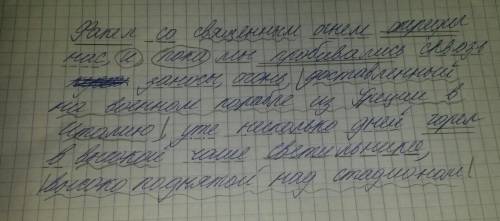 Факел со священным огнем опередил
нас, и пока мы пробивались сквозь
заносы, огонь, доставленный
на военном корабле из Греции в
Италию, уже несколько дней горел
в высокой чаше светильнике,
высоко поднятой над стадионом